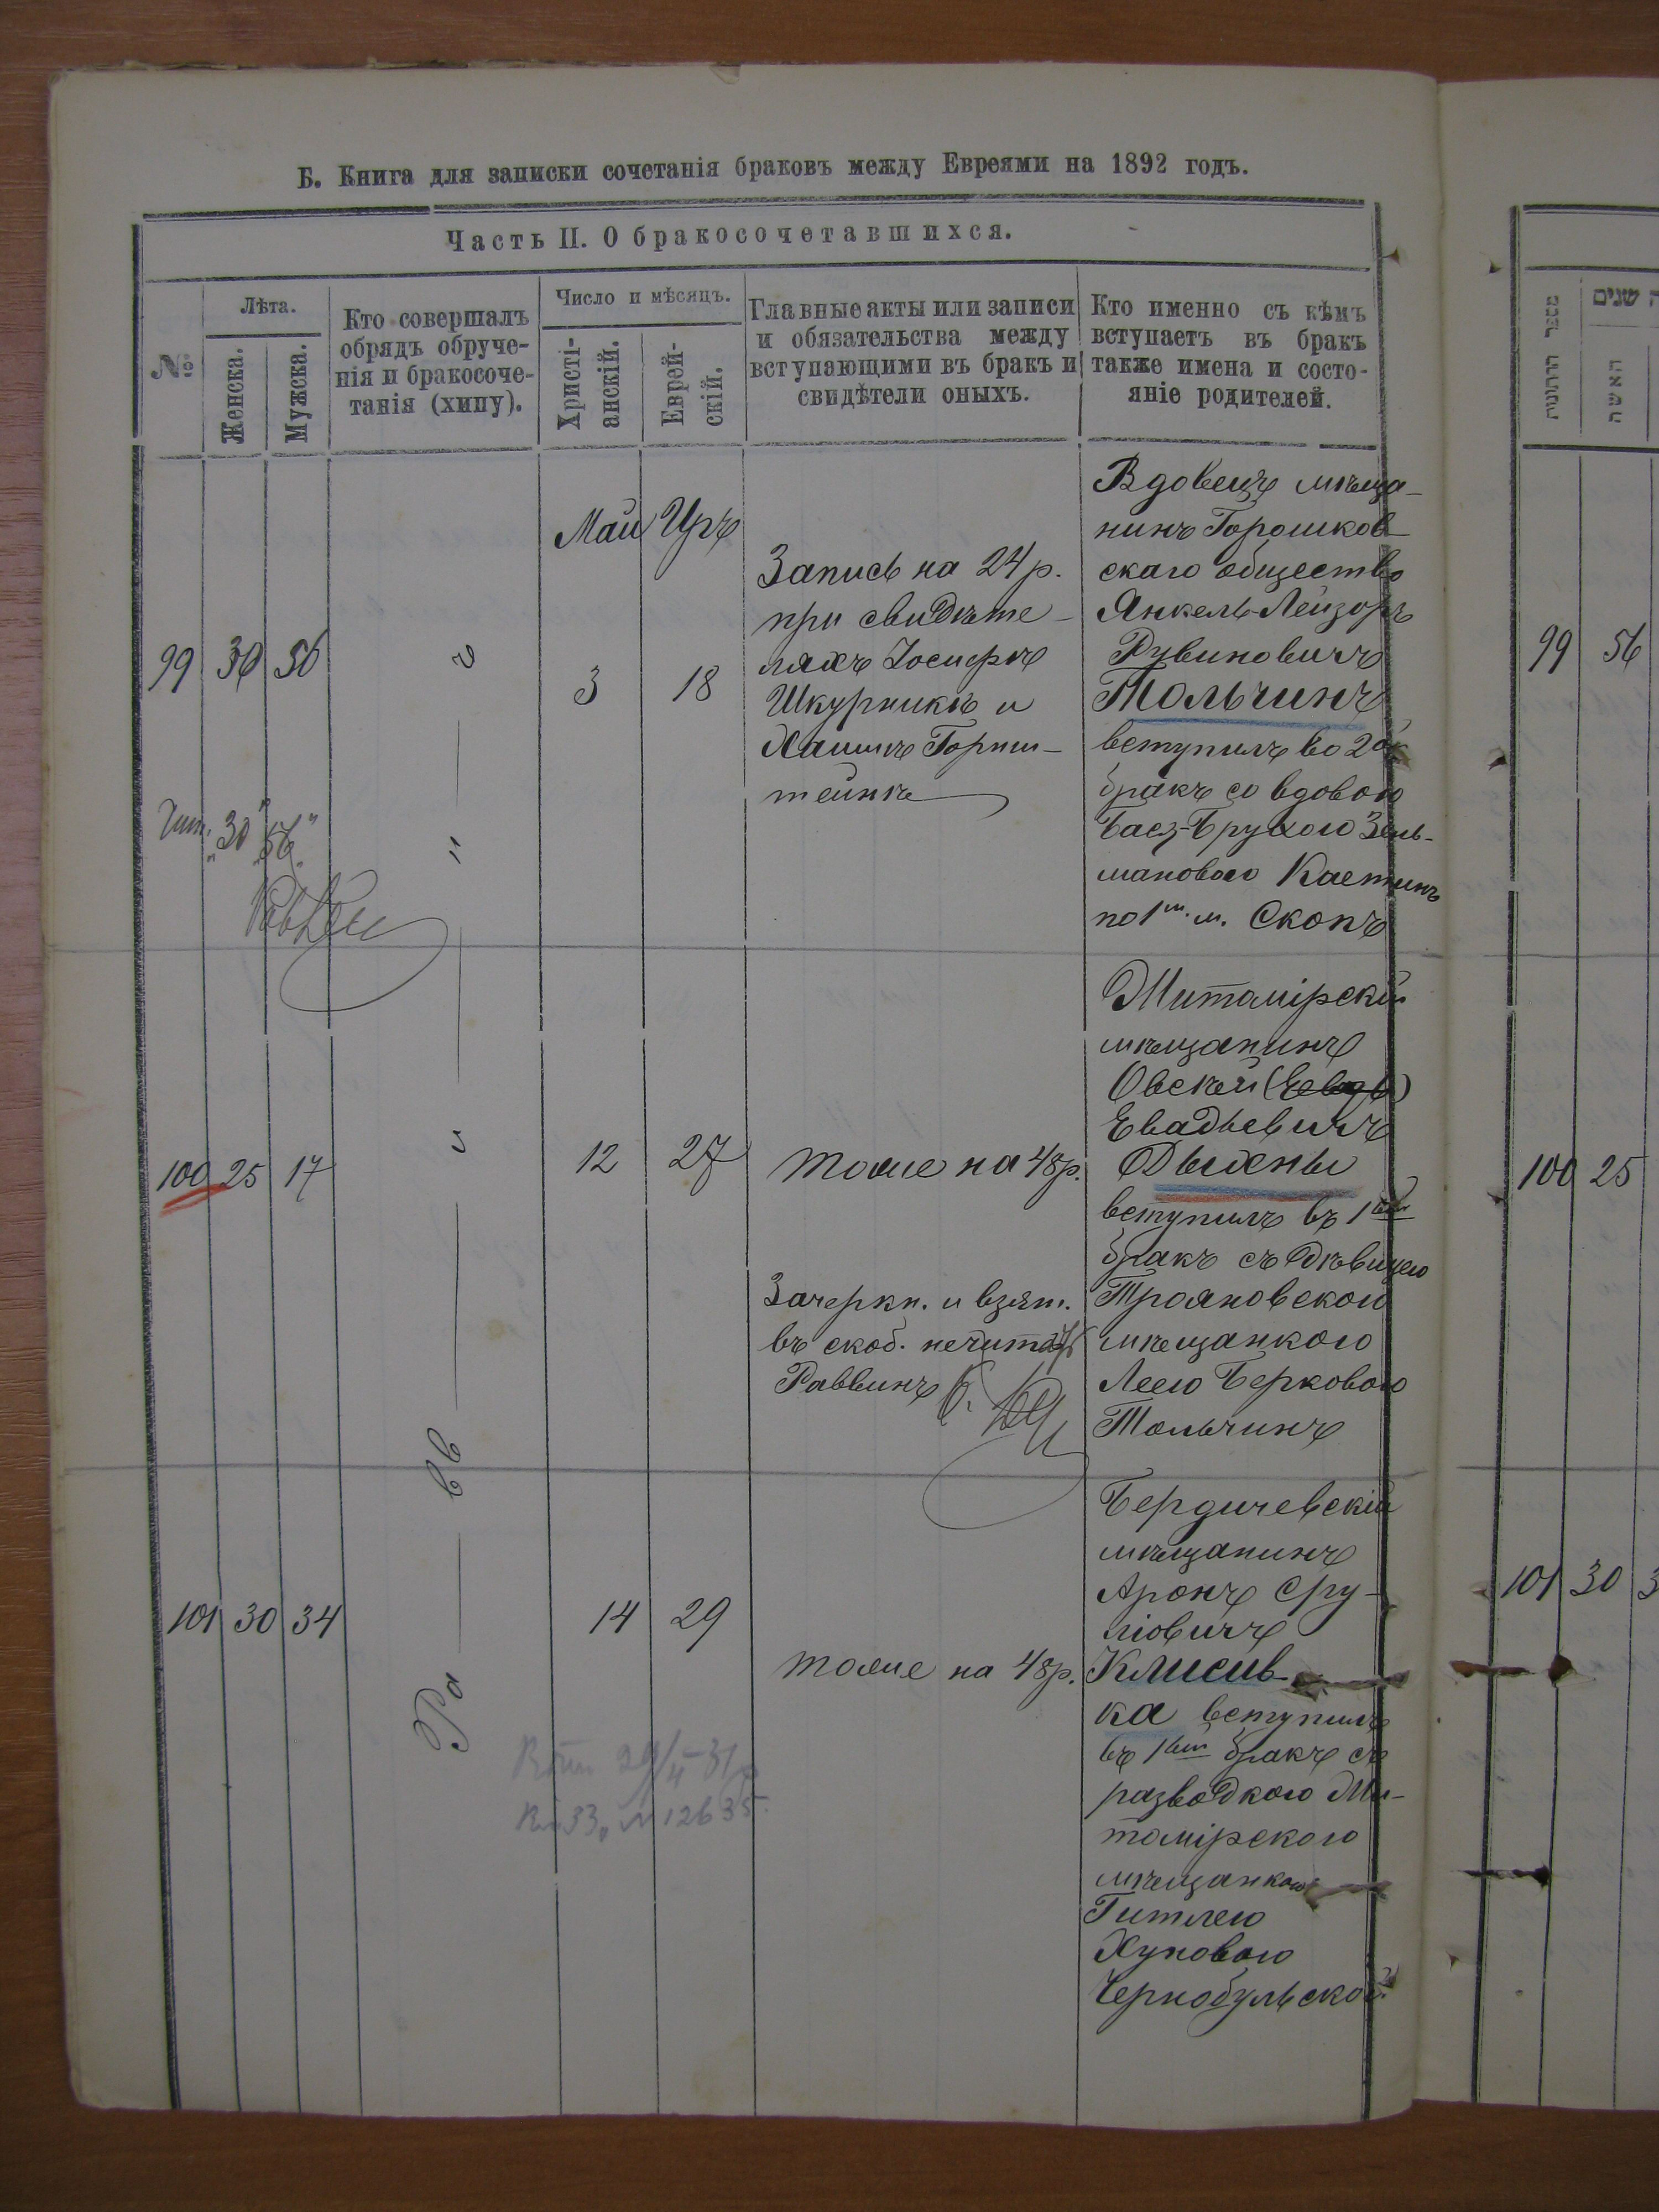 Б. Книга для записки сочетанія браковъ между Евреями на 1892 годъ.
Часть II. О бракосочетавшихся.
№
Лѣта.
Женска.
Мужска.
Кто совершалъ
обрядъ обруче-
нія и бракосоче-
танія (хипу).
Число и мѣсяцъ.
Христі-
анскій.
Еврей-
скій.
Главные акты или записи
и обязательства между
вступающими въ бракъ и
свидѣтели оныхъ.
Кто именно съ кѣмъ
вступаетъ въ бракъ
также имена и состо-
яніе родителей.
99 30 56
Май Иръ
3 18
Запись на 24 р.
при свидѣте-
ляхъ Іосифѣ
Шкурникѣ и
Хаимѣ Горнш-
тейнѣ
Вдовецъ мѣща-
нинъ Горошков-
скаго общества
Янкель-Лейзоръ
Рувиновичъ
Тольчинъ
вступилъ во 2ой
бракъ со вдовою
Басей-Брухою Зель-
мановою Кастинъ
по 1 м. м. Скопъ
Чит. "30" "56"
100 25 17
12 27
тоже на 48 р.
Зачеркн. и взят.
въ скоб. нечитать
Раввинъ
Житомірскій
мѣщанинъ
Овсей
Евадьевичъ
Дыхны
вступилъ въ 1ый
бракъ съ дѣвицею
Трояновскою
мѣщанкою
Леею Берковою
Тольчинъ
101 30 34
14 29
тоже на 48 р.
Бердичевскій
мѣщанинъ
Аронъ Сру-
ліовичъ
Клисив-
ка вступилъ
въ 1ый бракъ съ
разводкою Жи-
томірскою
мѣщанкою
Гитлею
Хуновою
Чернобульской
Ра вв и н ъ
99 56
100 25
101 30 3
מספר החתונות
שנים
האשה